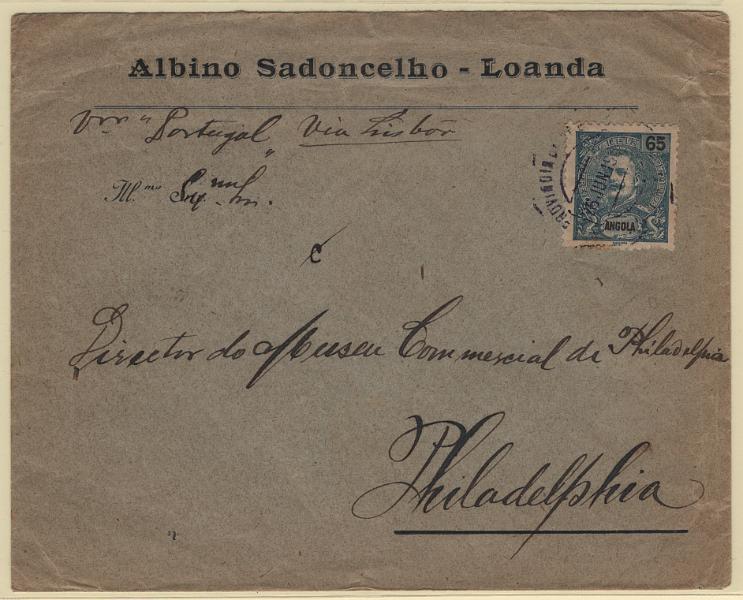 Albino Sadoncelho - Loanda
Vor "Portugal" Via Lisboa
Ill.mo Snr.
65
ANGOLA
PROVINCIA
Director do Museu Commercial de Philadelphia
Philadelphia